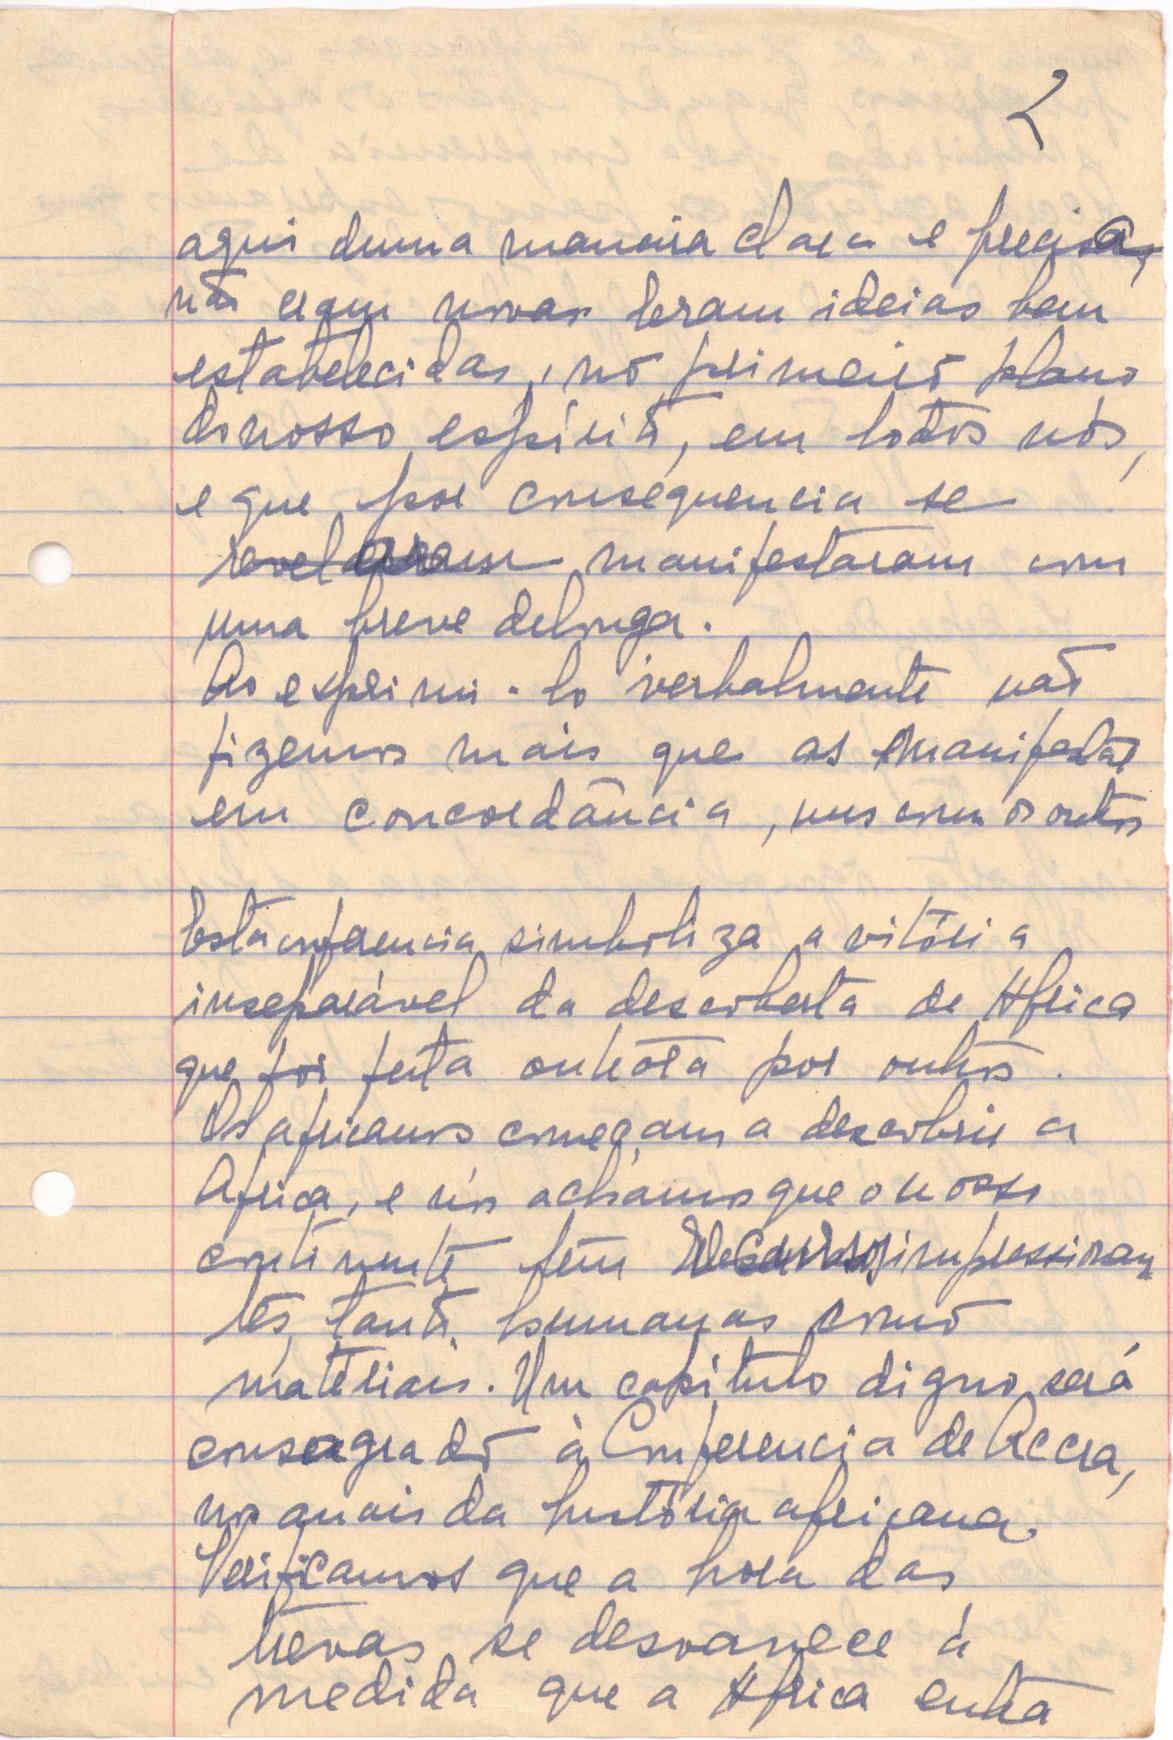 2
aqui duma maneira clara e precisa,
não eram novas. Eram ideias bem
estabelecidas, no primeiro plano
do nosso espírito, em todos nós,
e que por consequencia se
revelaram manifestaram com
uma breve delonga.
Ao exprimi-lo verbalmente não
fizemos mais que as manifestar
em concordância, uns com os outros
Esta conferencia simboliza a vitória
inseparável da descoberta de Africa
que foi feita outrora por outros.
Os africanos começam a descobrir a
Africa, e nós achamos que o nosso
continente tem recursos impressionan
tes, tanto humanas como
materiais. Um capitulo digno será
consagrado à Conferencia de Accra,
nos anais da história africana.
Verificamos que a hora das
trevas se desvanece à
medida que a Africa entra